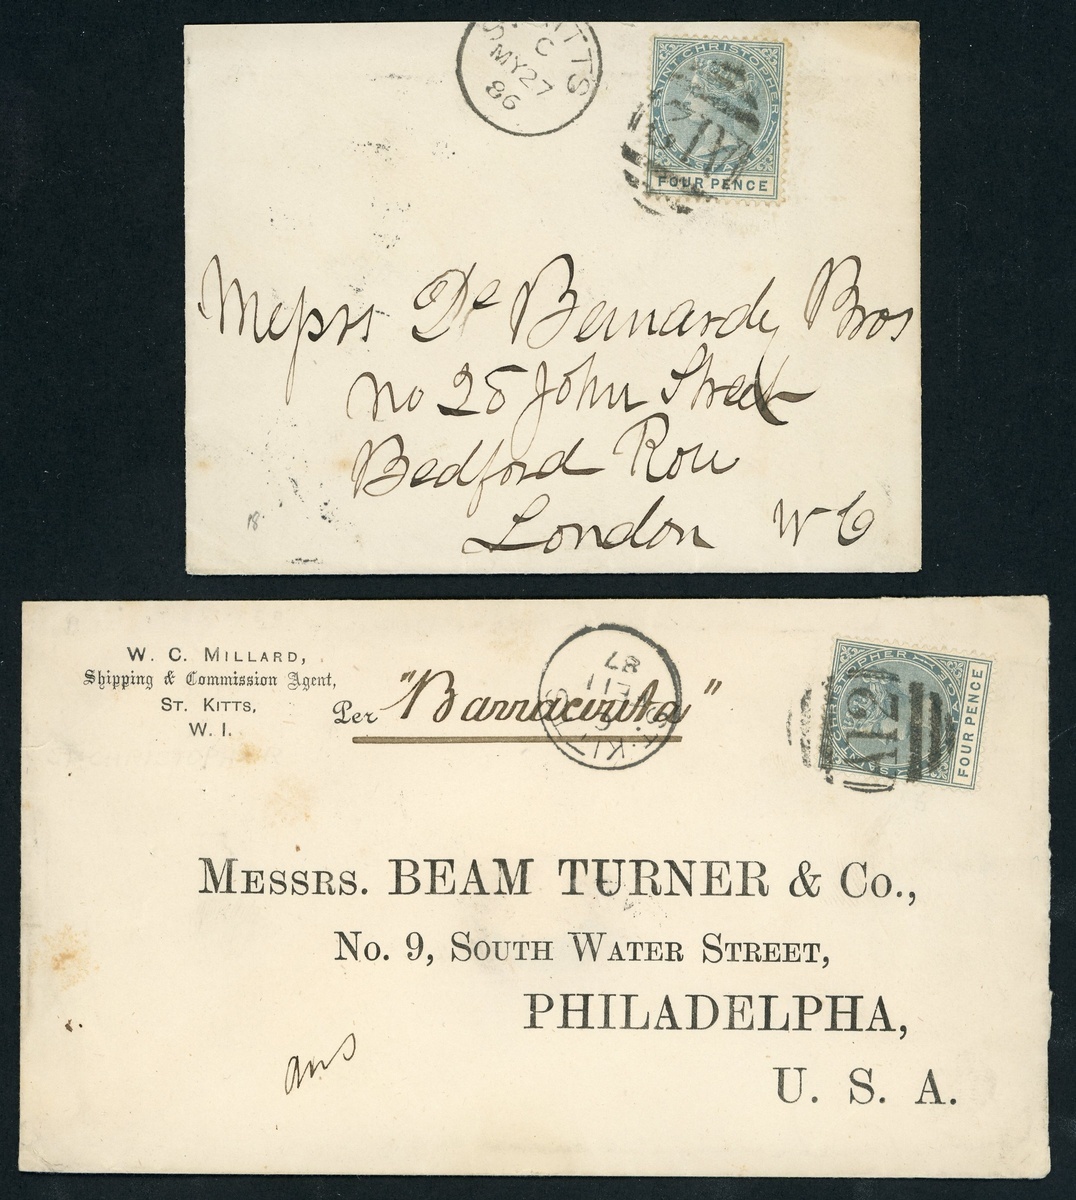 ST. KITTS
C
MY 27
86
SAINT CHRISTOPHER
FOUR PENCE
Messrs De Bernardy Bros
No 25 John Street
Bedford Row
London W C
18
W. C. MILLARD,
Shipping & Commission Agent,
ST. KITTS,
W. I.
Per "Barracouta"
ST. KITTS
87
SAINT CHRISTOPHER
A12
FOUR PENCE
MESSRS. BEAM TURNER & Co.,
No. 9, SOUTH WATER STREET,
PHILADELPHA,
U. S. A.
ans